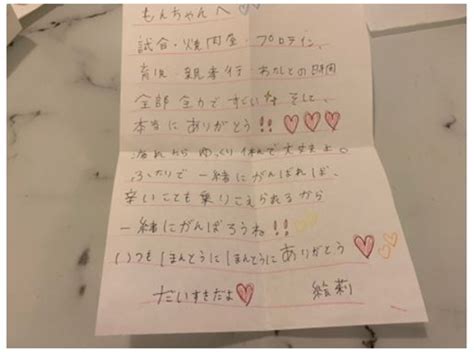 もんちゃんへ♡
試合・焼肉会・プロテイン、
育児・親孝行 わたしとの時間
全部全力ですごいな そして、
本当に ありがとう!! ♡♡♡
疲れたら ゆっくり休んで大丈夫よ。
ふたりで 一緒に がんばれば、
辛いことも 乗りこえられるから
一緒にがんばろうね!!♡♡
いつも ほんとうに ほんとうに ありがとう♡♡♡
だいすきだよ♡ 絵莉